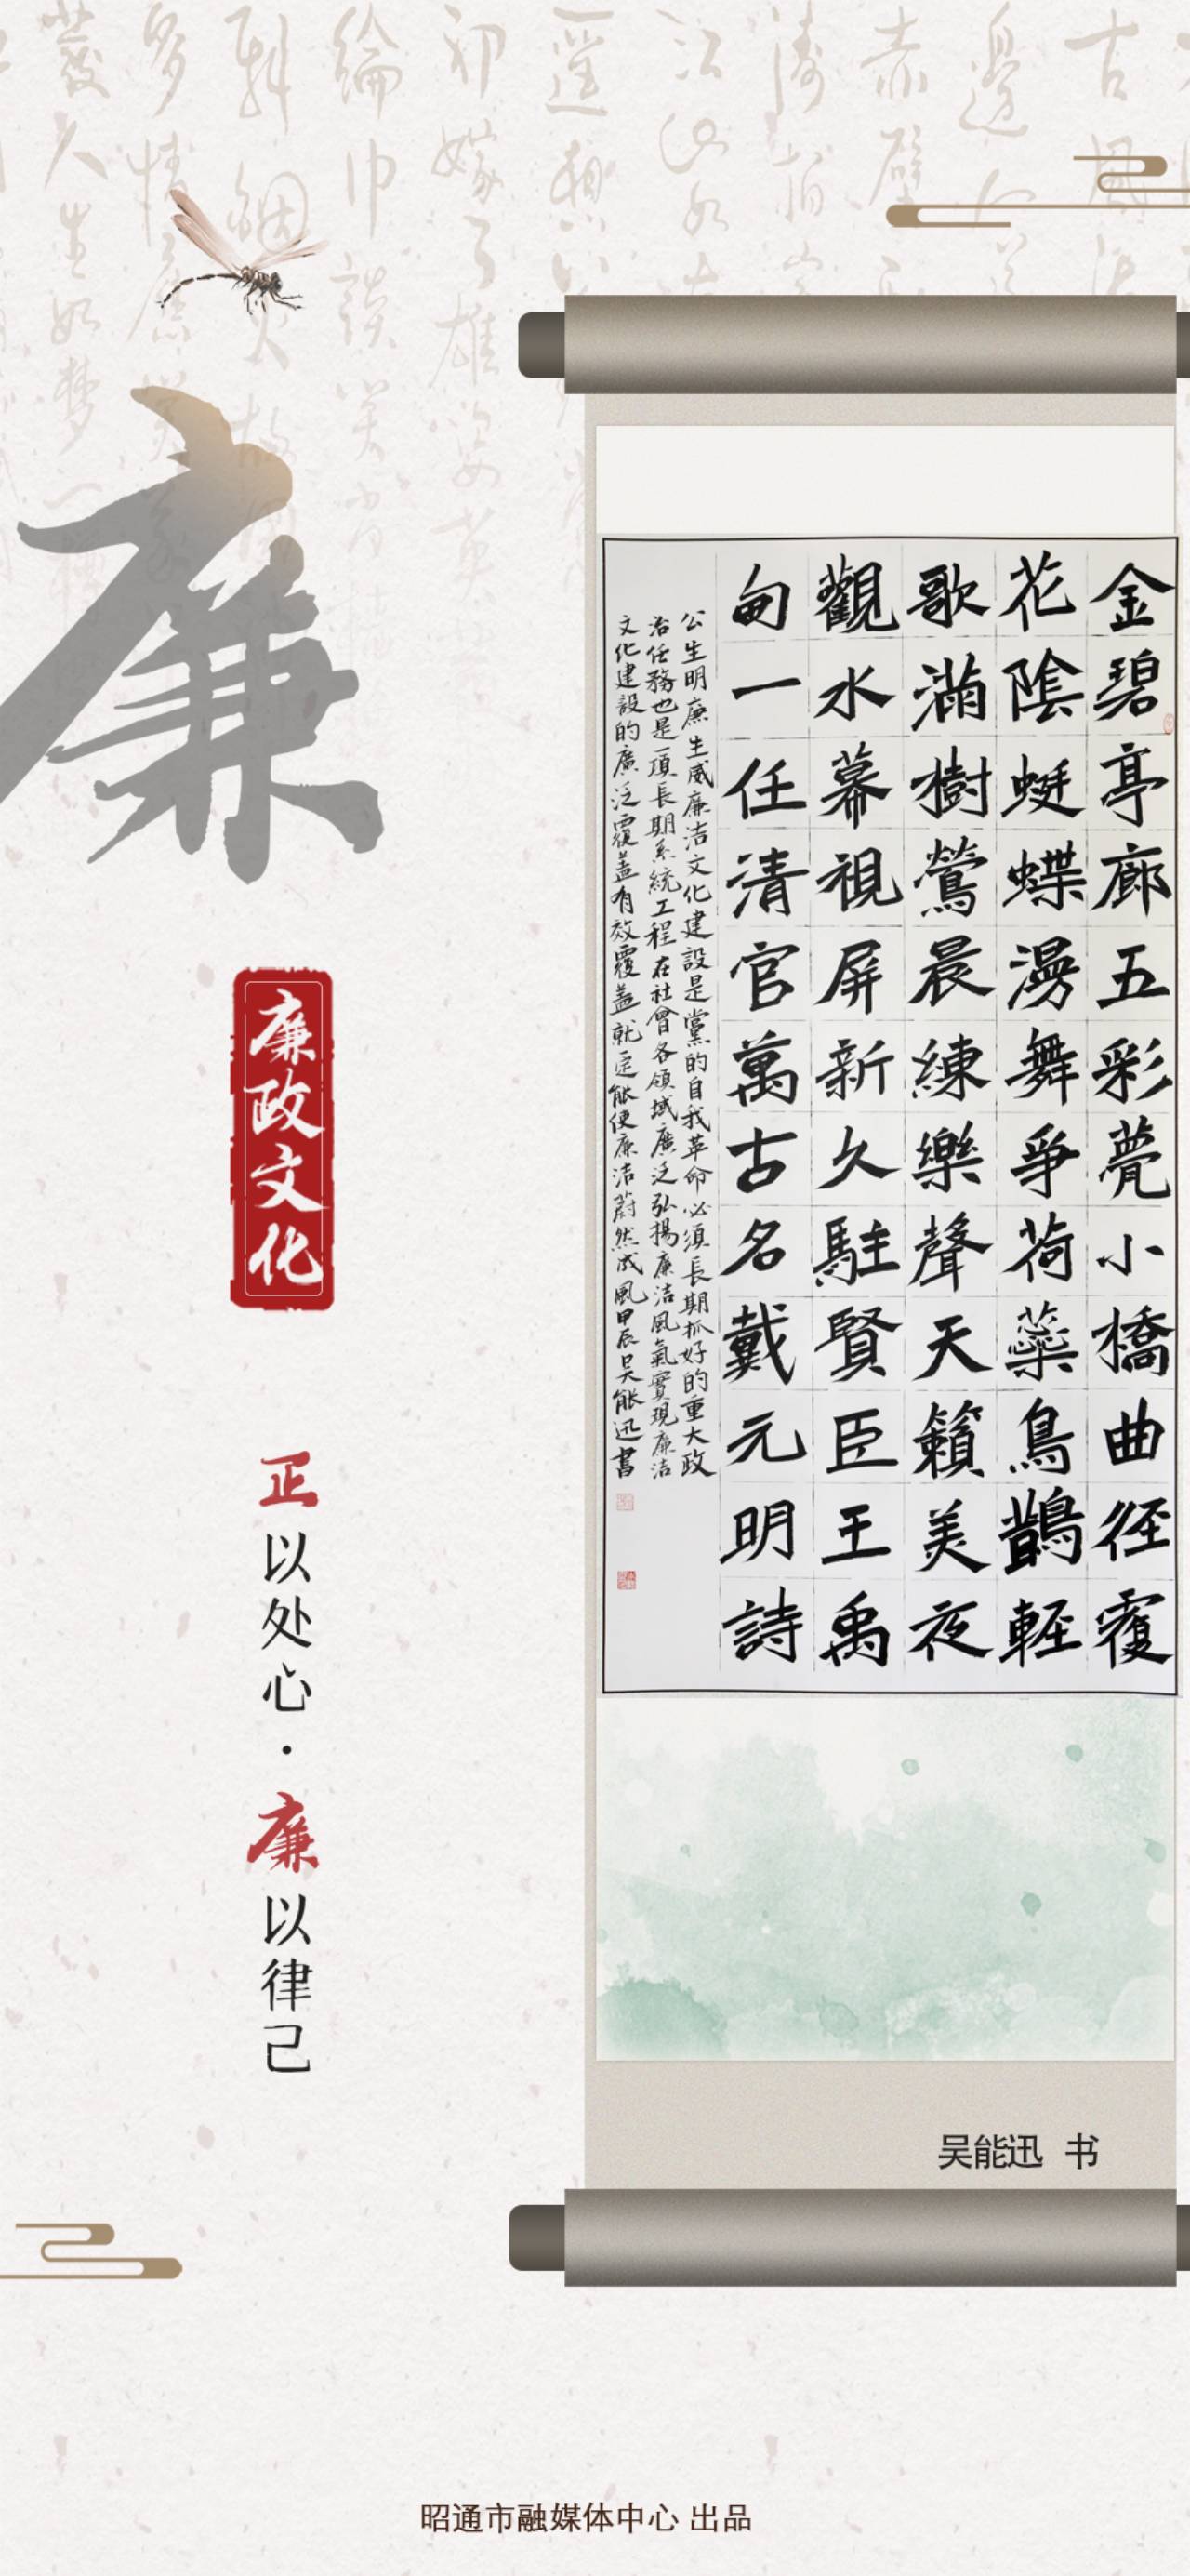 廉
廉政文化
正以处心·廉以律己
金碧亭廊五彩甍小橋曲徑覆
花陰蜓蝶漫舞爭荷蘂鳥鵲輕
歌滿樹鶯晨練樂聲天籟美夜
觀水幕視屏新久駐賢臣王禹
甸一任清官萬古名戴元明詩
公生明廉生威廉洁文化建設是黨的自我革命必須長期抓好的重大政
治任務也是一項長期系統工程在社會各領域廣泛弘揚廉洁風氣實現廉洁
文化建設的廣泛覆蓋有效覆蓋就一定能使廉洁蔚然成風甲辰吴能迅書
吴能迅 书
昭通市融媒体中心 出品